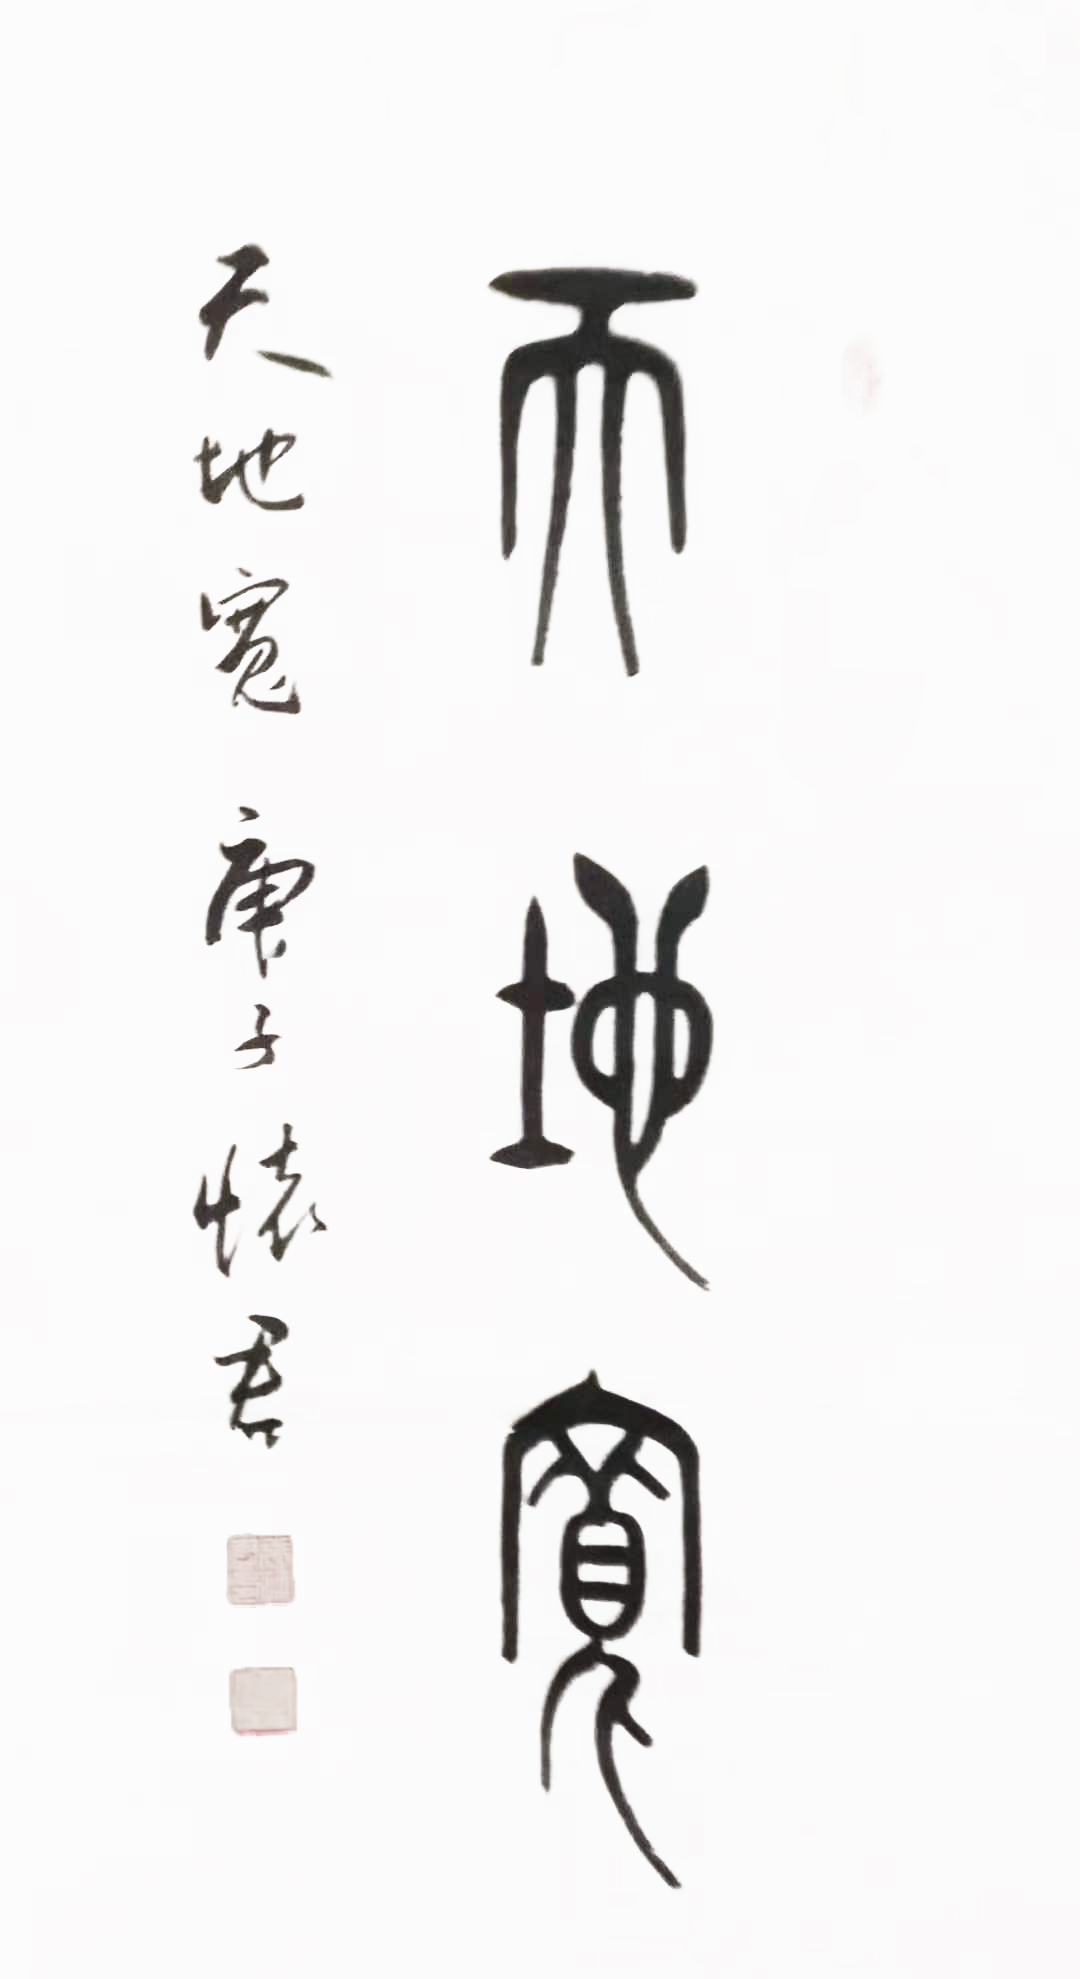 天地寬
天地寬 庚子 懷君